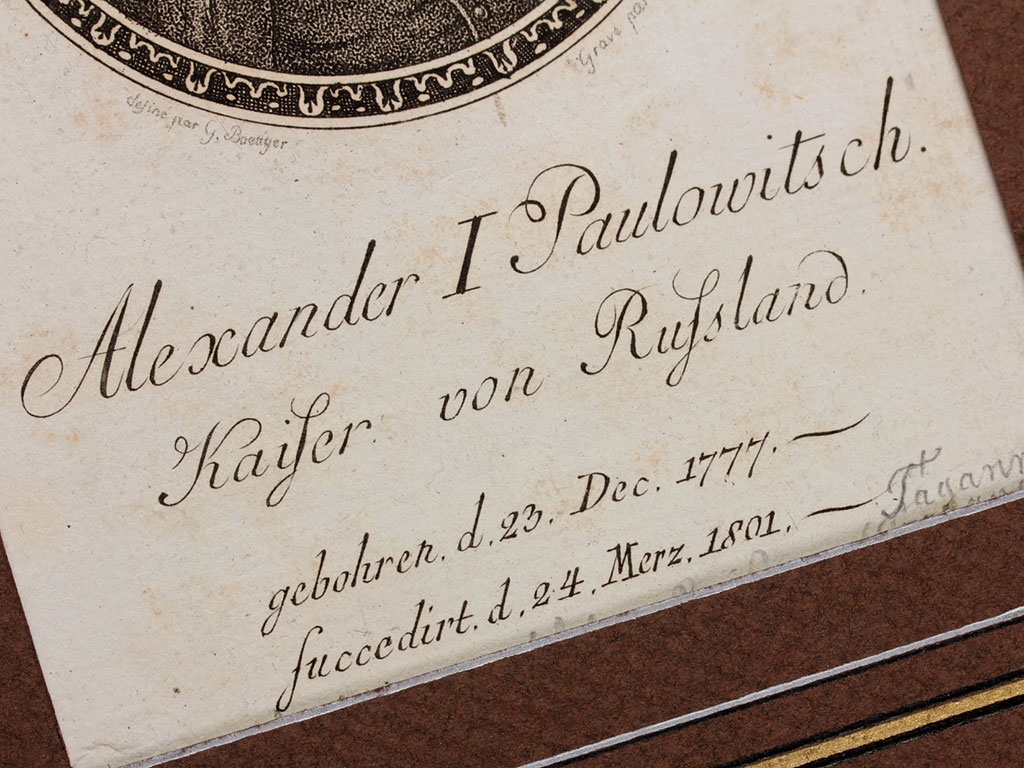 desiné par G. Boettger
Gravé par
Alexander I Paulowitsch.
Kaiſer von Ruſsland.
gebohren. d. 23. Dec. 1777. —
ſuccedirt. d. 24. Merz. 1801. —